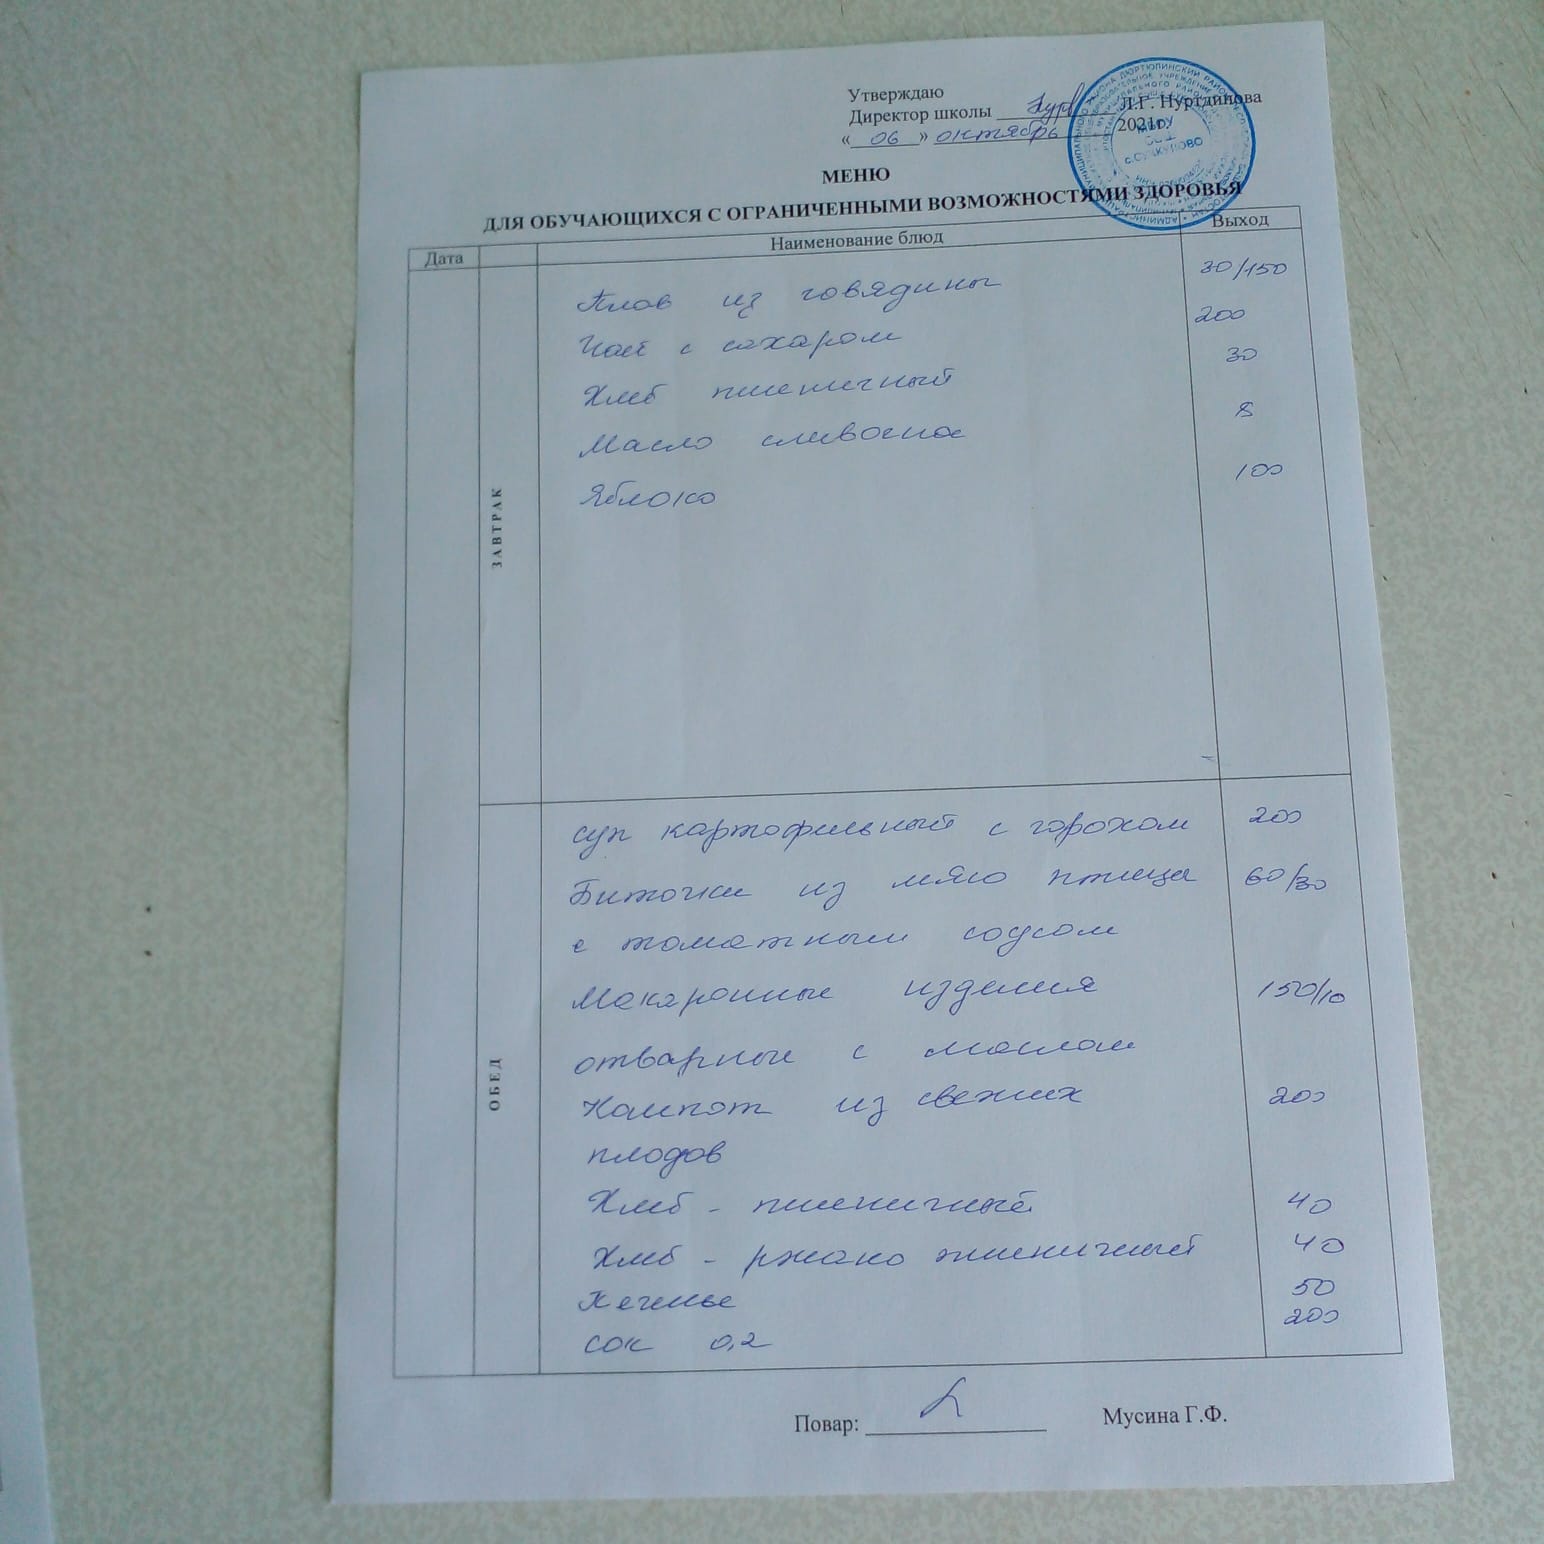 Утверждаю
Директор школы Л.Г. Нуртдинова
« 06 » октябрь 2021г.
МБОУ
СОШ
МЕНЮ
ДЛЯ ОБУЧАЮЩИХСЯ С ОГРАНИЧЕННЫМИ ВОЗМОЖНОСТЯМИ ЗДОРОВЬЯ
Дата Наименование блюд Выход
ЗАВТРАК
Плов из говядины 30/150
Чай с сахаром 200
Хлеб пшеничный 30
Масло сливочна 8
Яблоко 100
ОБЕД
суп картофельный с горохом 200
Биточки из мясо птицы 60/30
с томатным соусом
Макаронные изделия 150/10
отварные с маслом
Компот из свежих 200
плодов
Хлеб - пшеничный 40
Хлеб - ржано пшеничный 40
Печенье 50
сок 0,2 200
Повар: Мусина Г.Ф.